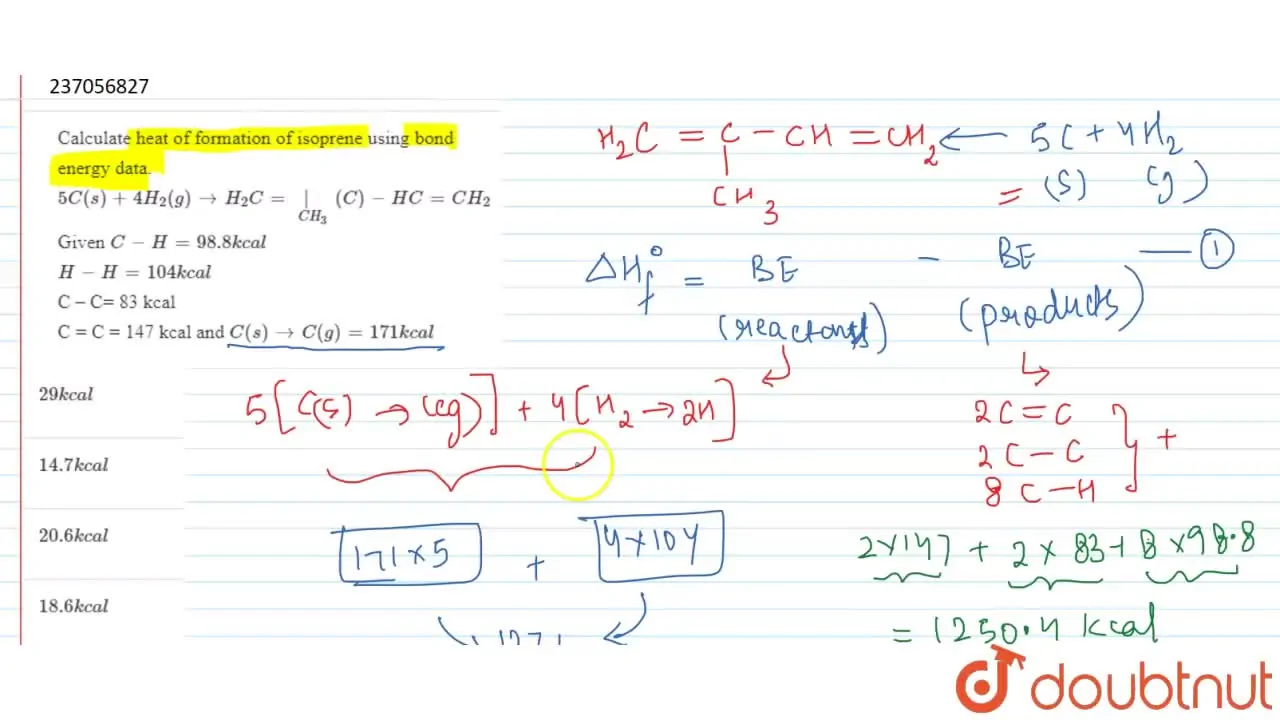 237056827
Calculate heat of formation of isoprene using bond
energy data.
5C(s) + 4H₂(g) → H₂C = | (C) − HC = CH₂
CH₃
Given C − H = 98.8kcal
H − H = 104kcal
C – C= 83 kcal
C = C = 147 kcal and C(s) → C(g) = 171kcal
29kcal
14.7kcal
20.6kcal
18.6kcal
H₂C = C − CH = CH₂ ← 5C + 4H₂
CH₃ = (s) (g)
ΔH°f = BE − BE — ①
(reactants) (products)
5[C(s) → C(g)] + 4[H₂ → 2H]
2C = C
2C − C
8 C − H } +
171×5 + 4×104
2×147 + 2×83 + 8×98.8
= 1250.4 kcal
1271
doubtnut